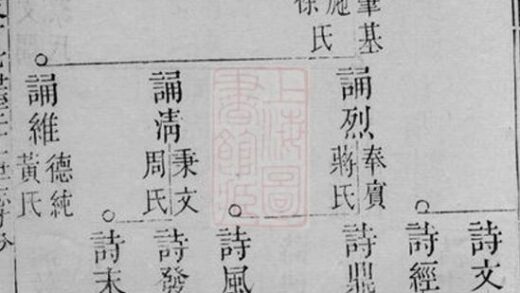 肇基
施氏
徐氏
誦烈
奉賓
蔣氏
誦清
秉文
周氏
誦維
德純
黃氏
詩文
詩經
詩鼎
詩風
詩發
詩末
上海圖書館藏